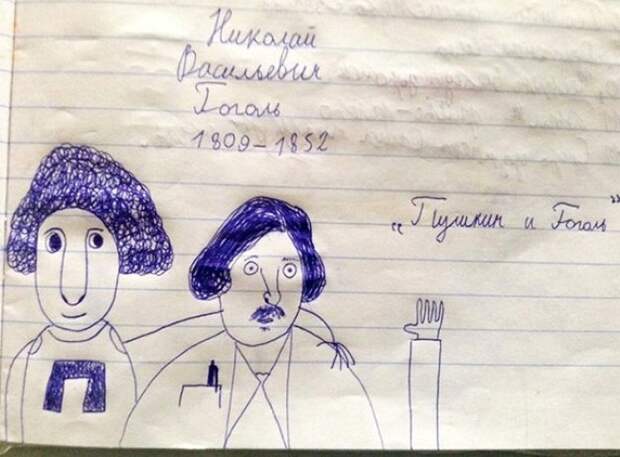 Николай
Васильевич
Гоголь
1809-1852
„Пушкин и Гоголь”
П